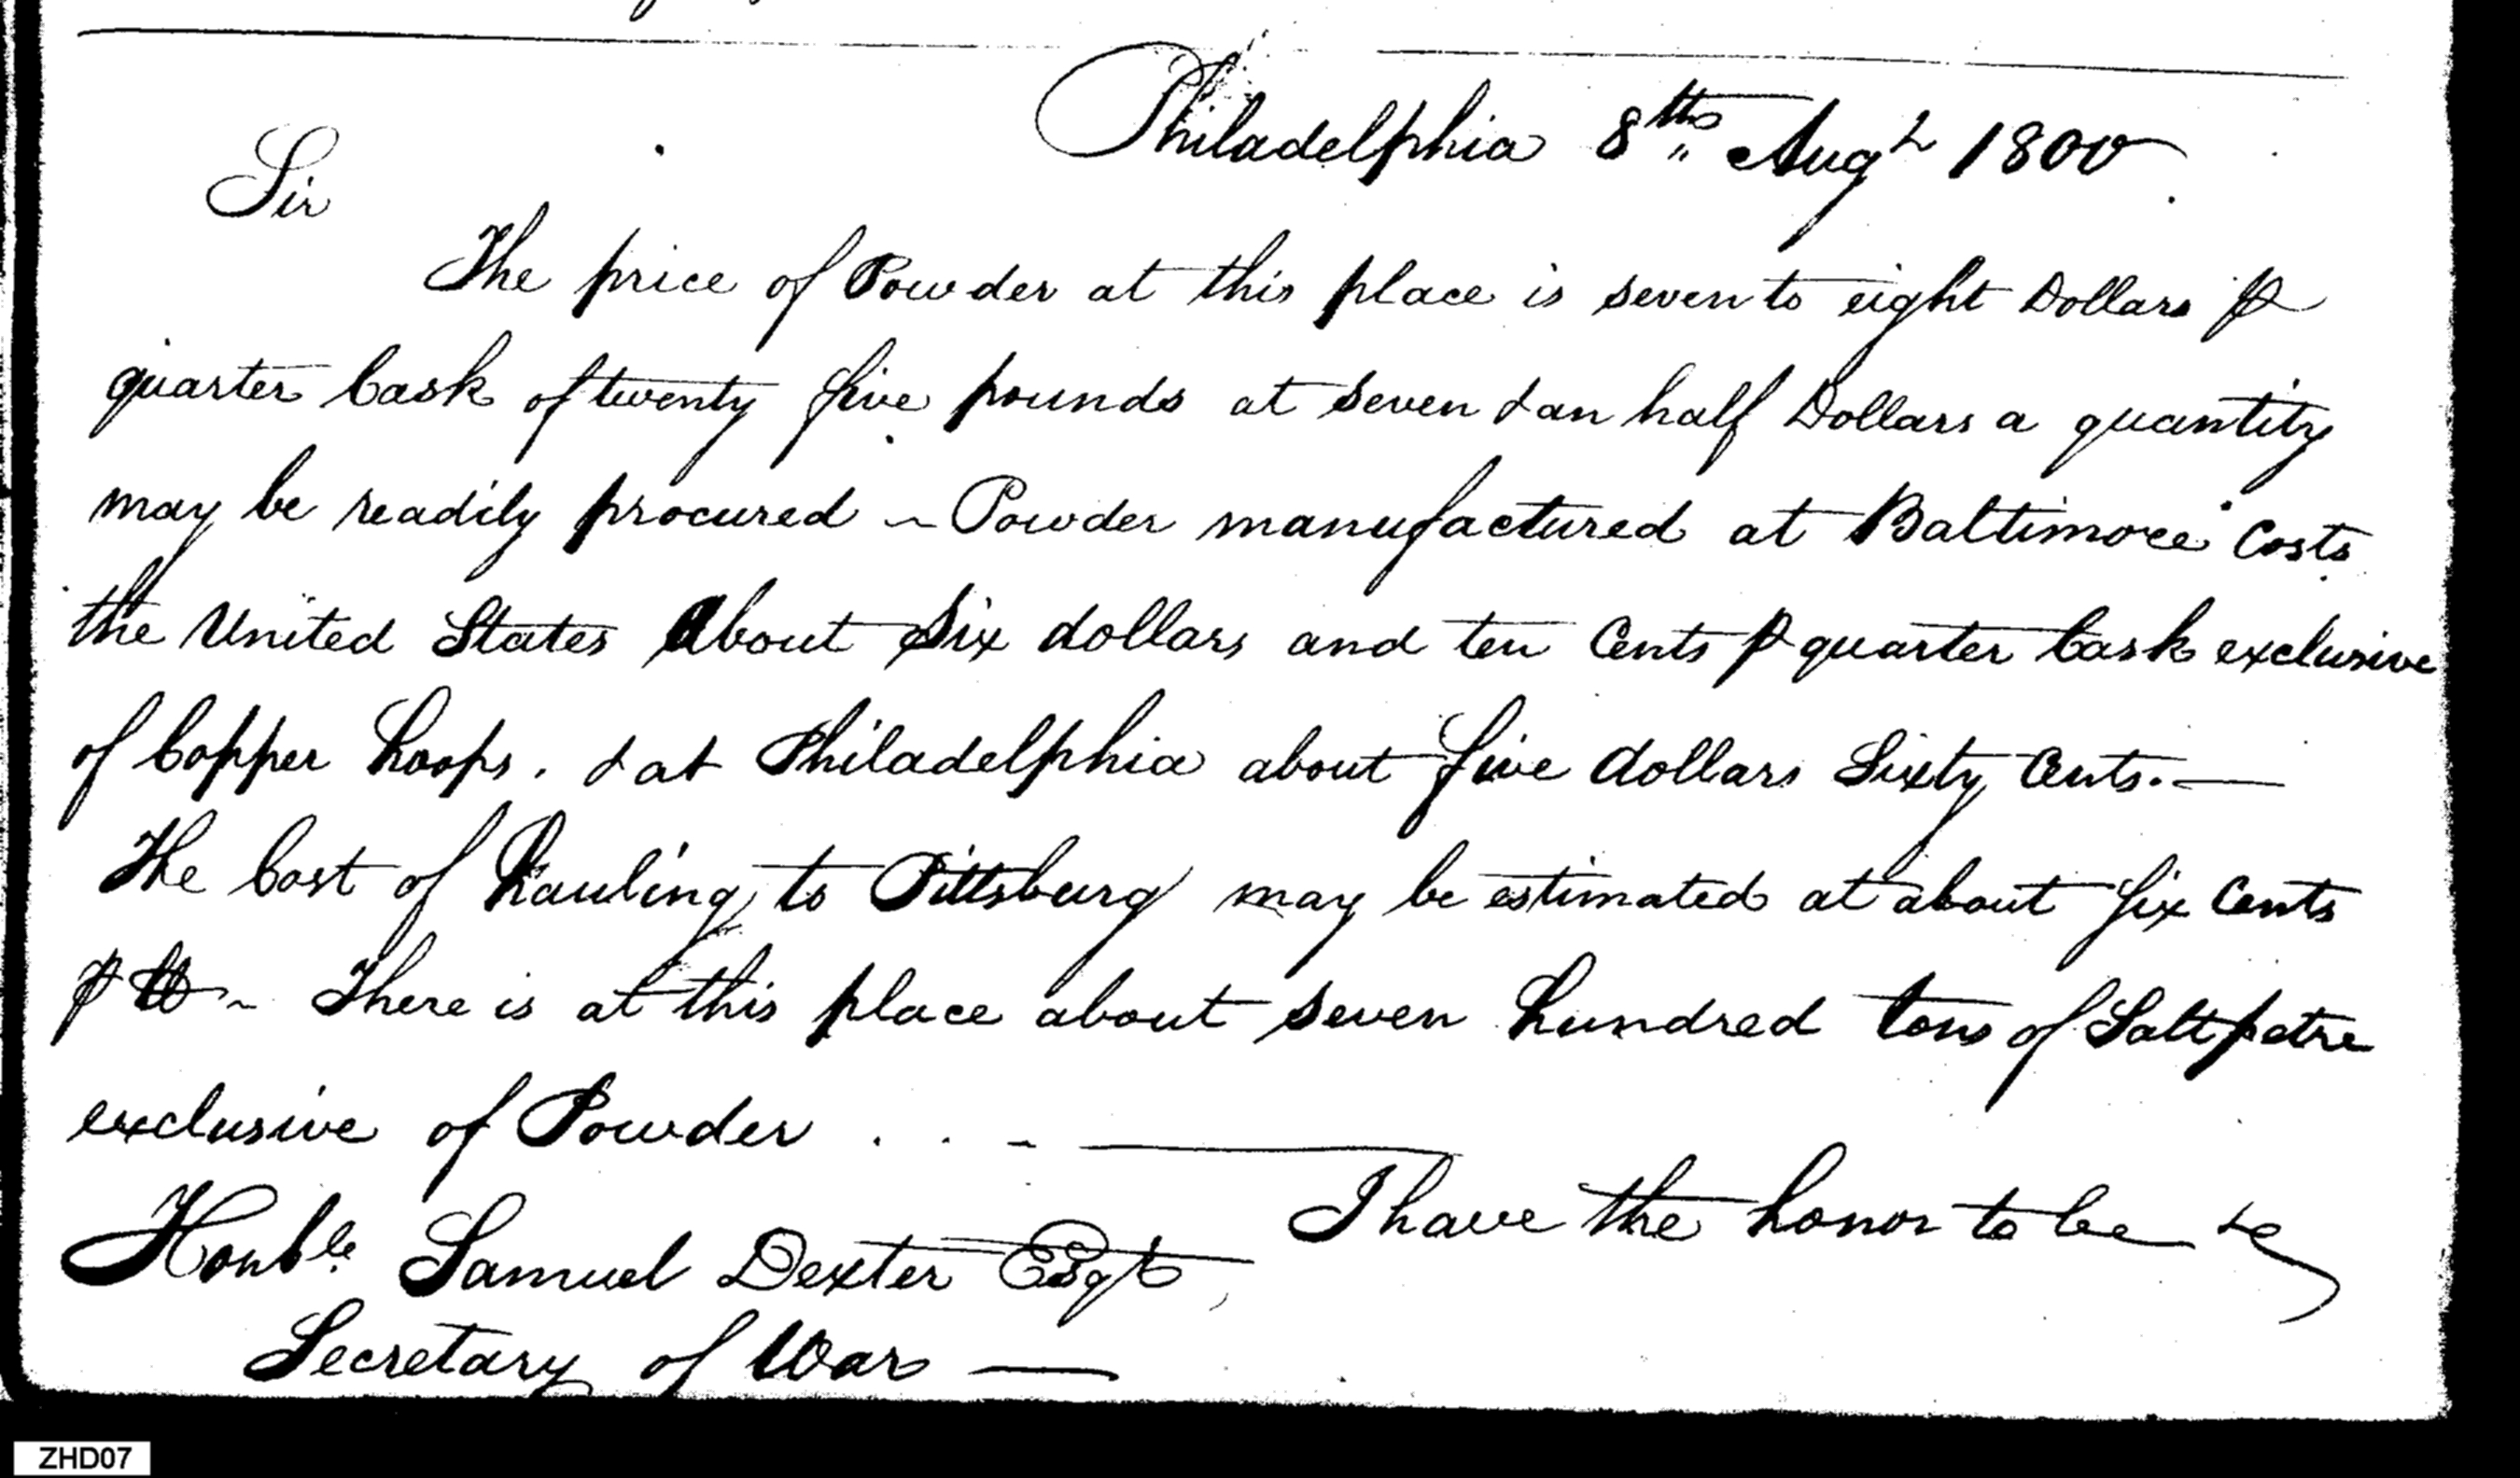 Philadelphia 8th Augt 1800
Sir
The price of Powder at this place is seven to eight Dollars ⅌
quarter Cask of twenty five pounds at seven & an half Dollars a quantity
may be readily procured ~ Powder manufactured at Baltimore Costs
the United States About Six dollars and ten Cents ⅌ quarter Cask exclusive
of Copper hoops. & at Philadelphia about five dollars Sixty Cents. —
The Cost of hauling to Pittsburg may be estimated at about six Cents
⅌ lb ~ There is at this place about seven hundred tons of Saltpetre
exclusive of Powder . . - —
I have the honor to be &c
Honble. Samuel Dexter Esqr
Secretary of War —
ZHD07